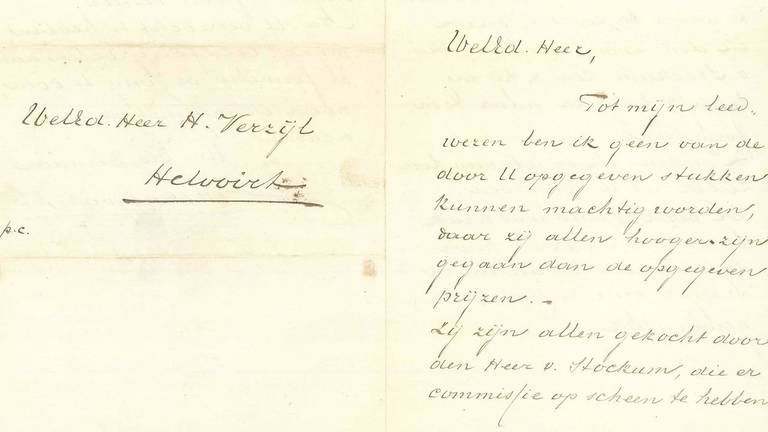 WelEd. Heer H. Verzijl
Helvoirt
p.c.
WelEd. Heer,
Tot mijn leed-
wezen ben ik geen van de
door U opgegeven stukken
kunnen machtig worden,
daar zij allen hooger zijn
gegaan dan de opgegeven
prijzen. -
Zij zijn allen gekocht door
den Heer v. Stockum, die er
commissie op scheen te hebben